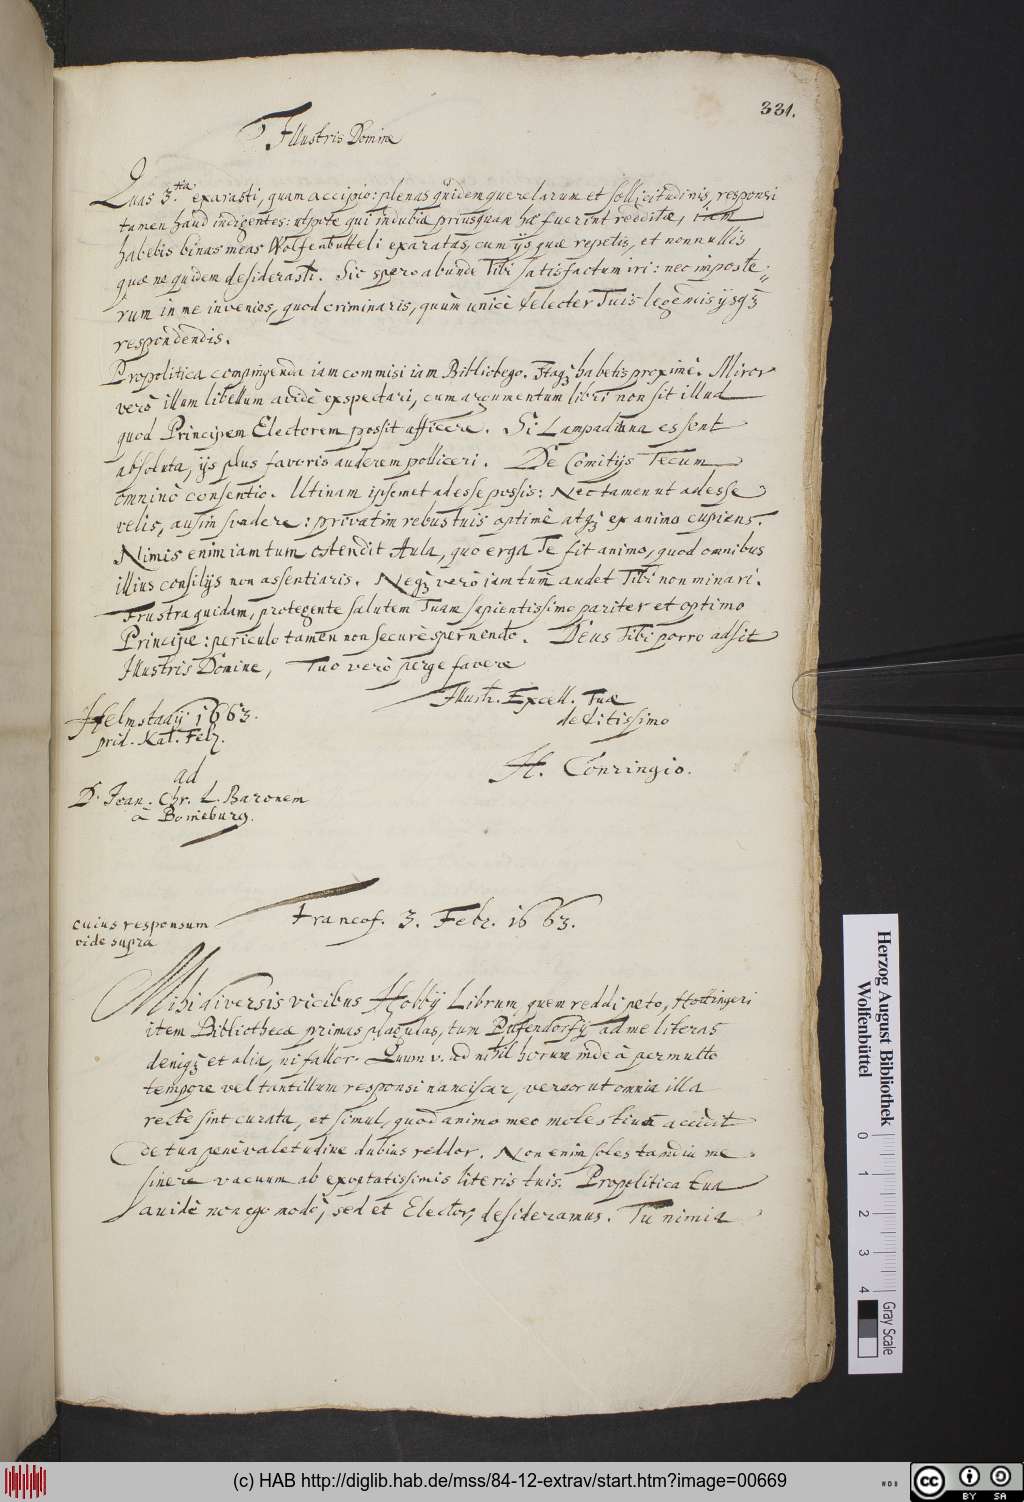 331.
Illustris Domine
Quas 3.tia exarasti, quam accipio: plenas quidem querelarum et sollicitudinis, responsi
tamen haud indigentes: utpote qui indubiae priusquam hae fuerint redditae, iam
habebis binas meas Wolfenbutteli exaratas, cum ijs quae repetis, et nonnullis
quae ne quidem desiderasti. Sic spero abunde Tibi satisfactum iri: nec imposte-
rum in me invenies, quod crimineris, quum unice delecter Tuis legendis ijsqȝ
respondendis.
Propolitica compingenda iam commisi iam Bibliopego. Itaqȝ habetis proxime. Miror
vero illum libellum avide exspectari, cum argumentum libri non sit illud
quod Principem Electorem possit afficere. Si Lampadiana essent
absoluta, ijs plus favoris auderem polliceri. De Comitijs Tecum
omnino consentio. Utinam ipsemet adesse possis: Nec tamen ut adesse
velis, ausim svadere: privatim rebus tuis optime atqȝ ex animo cupiens.
Nimis enim iam tum ostendit Aula, quo erga Te sit animo, quod omnibus
illius consilijs non assentiaris. Neqȝ vero iam tum audet Tibi non minari.
Frustra quidam, protegente salutem Tuam sapientissimo pariter et optimo
Principe: periculo tamen non secure spernendo. Deus Tibi porro adsit
Illustris Domine, Tuo vero perge favere
Illustr. Excell. Tuae
deditissimo
Helmstadij 1663.
prid. Kal. Febr.
H. Conringio.
ad
D. Ioan. Chr. L. Baronem
à Boineburg.
cuius responsum
vide supra
Francof. 3. Febr. 1663.
Mihi diversis vicibus Hobbij Librum quem reddi peto, Hottingeri
item Bibliothecae primas plagulas, tum Pufendorfij ad me literas
deniqȝ et alia, ni fallor. Quum v. ad nihil horum inde à permulto
tempore vel tantillum responsi nanciscar, vereor ut omnia illa
recte sint curata, et simul, quod animo meo molestius accidit
de tua pene valetudine dubius reddor. Non enim soles tamdiu me
sinere vacuum ab exoptatissimis literis tuis. Propolitica tua
avide non ego modo, sed et Elector, desideramus. Tu nimia
Herzog August Bibliothek
Wolfenbüttel
0 1 2 3 4
Gray Scale
(c) HAB http://diglib.hab.de/mss/84-12-extrav/start.htm?image=00669
cc BY SA